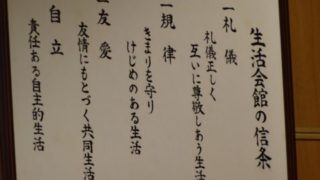 生活会館の信条
一礼儀
礼儀正しく
互いに尊敬しあう生活
一規律
きまりを守り
けじめのある生活
一友愛
友情にもとづく共同生活
自立
責任ある自主的生活